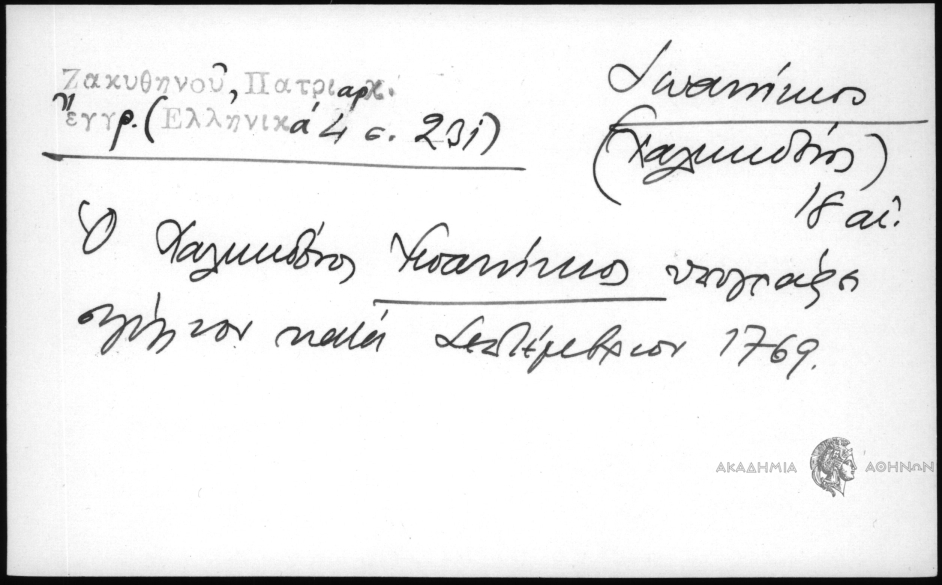 Ζακυθηνοῦ, Πατριαρχ.
ἔγγρ. (Ἑλληνικά 4 σ. 231)
Ἰωαννίκιος
(Χαλκηδόνος)
18 αἰ.
Ὁ Χαλκηδόνος Ἰωαννίκιος ὑπογράφει
κατά Σεπτέμβριον 1769.
ΑΚΑΔΗΜΙΑ ΑΘΗΝΩΝ